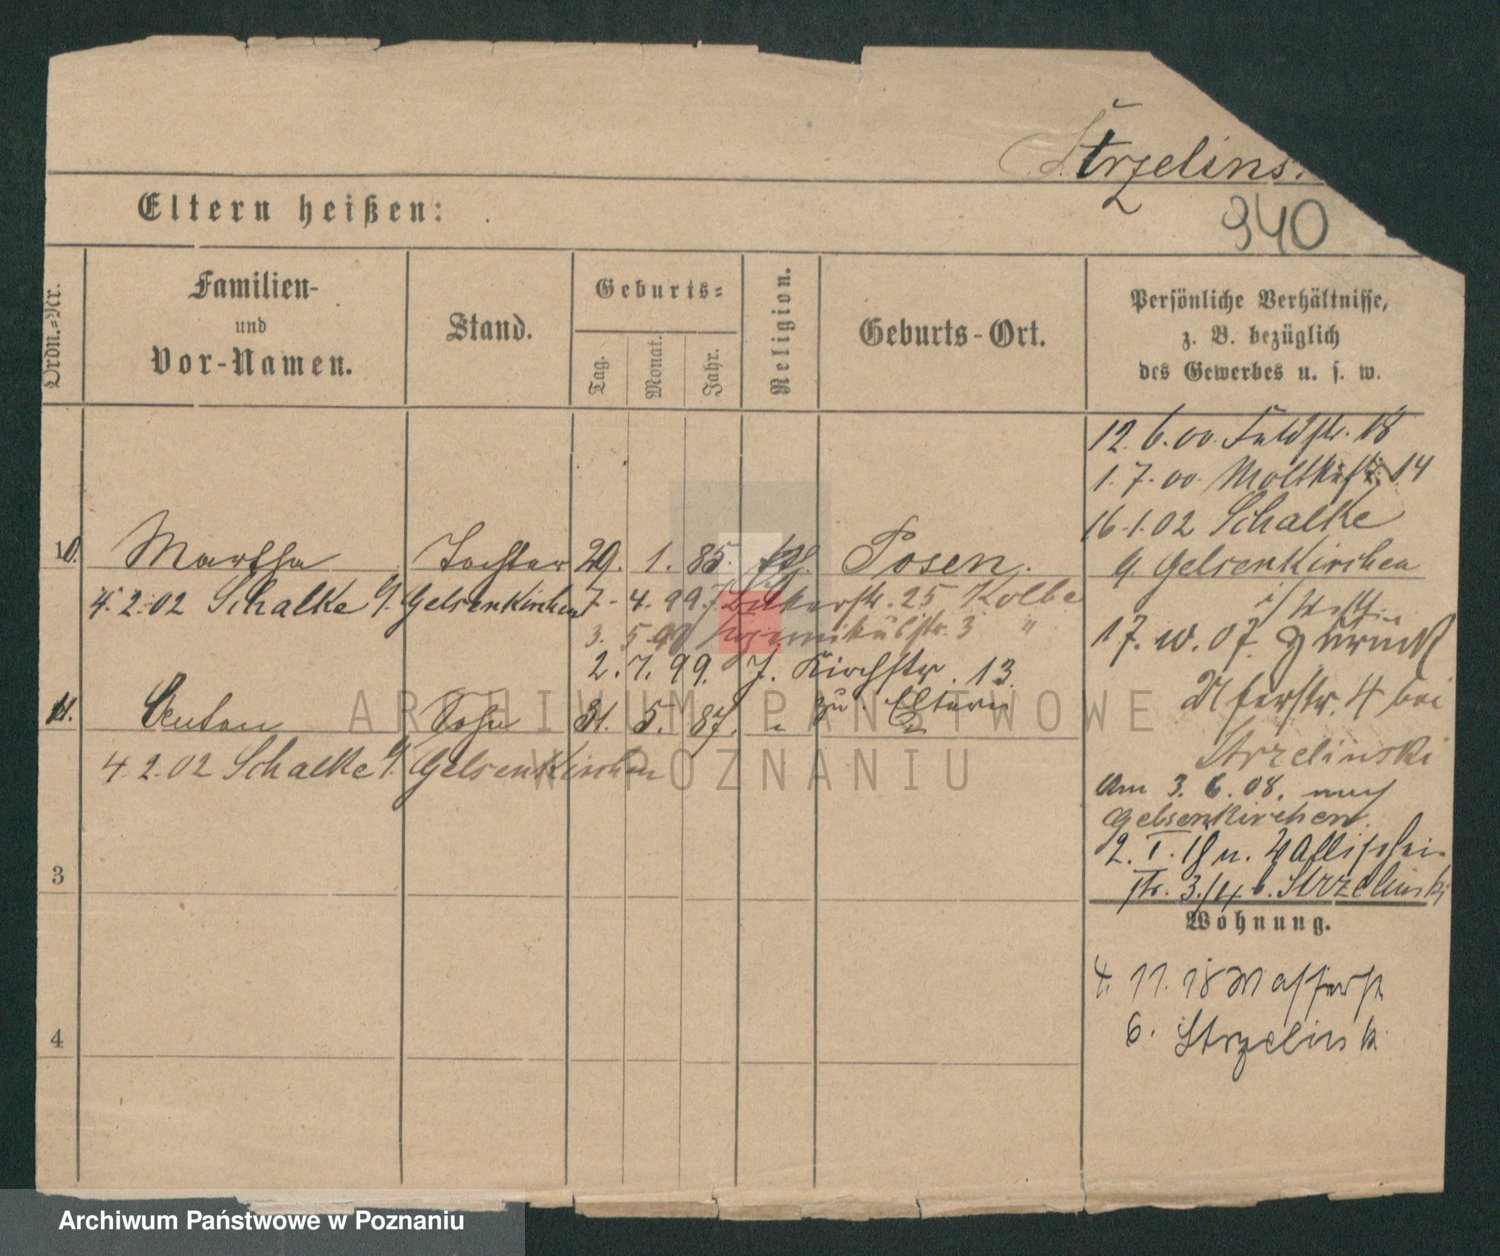 Strzelins.
940
Eltern heißen:
Ordn.-Nr.
Familien-
und
Vor-Namen.
Stand.
Geburts-
Tag.
Monat.
Jahr.
Religion.
Geburts-Ort.
Persönliche Verhältnisse,
z. B. bezüglich
des Gewerbes u. s. w.
12. 6. 00. Feldstr. 18
1. 7. 00 Moltkestr. 14
16. 1. 02 Schalke
g. Gelsenkirchen
i/Westf.
17. 10. 07. Zurück
Uferstr. 4 bei
Strzelinski
Am 3. 6. 08. nach
Gelsenkirchen.
2. I. 18 u. Wallischei-
str. 3/4 b. Strzelinski
10. Martha Tochter 29. 1. 85. kth. Posen.
4. 2. 02 Schalke g. Gelsenkirchen 7. 4. 99. J. 25 Kolbe
3. 5. 99 3 "
2. 7. 99. J. Kirchstr. 13
zu Eltern
11. Anton Sohn 31. 5. 87. "
4. 2. 02 Schalke g. Gelsenkirchen
3
4
Wohnung.
4. 11. 18 Wasserstr
6. Strzelinski
ARCHIWUM PAŃSTWOWE
W POZNANIU
Archiwum Państwowe w Poznaniu